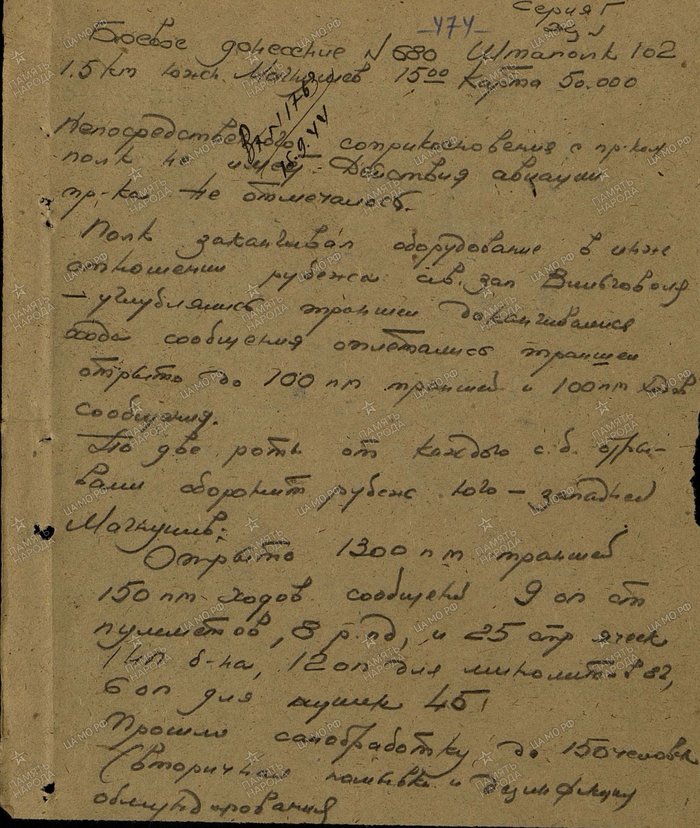 Серия Г
-474-
Боевое донесение N 680 Штаполк 102
1.5 km южн. Магнушев 15 00 Карта 50.000
Вх N 1176
15.9.44
Непосредственного соприкосновения с пр-ком
полк не имел. Действия авиации
пр-ка не отмечалось.
Полк заканчивал оборудование в инж
отношении рубежа сев. зап Вильговоля
– углублялись траншеи заканчивались
хода сообщения оплетались траншеи
отрыто до 700 пм траншей и 100 пм ходов
сообщения.
По две роты от каждого с.б. отры-
вали оборонит рубеж юго-западней
Магнушев:
Открыто 1300 пм траншей
150 пм ходов сообщений 9 оп ст
пулиметов, 8 р.пд, и 25 стр ячеек
1 нп б-на, 12 оп для минометов 82,
6 оп для пушек 45.
Прошло санобработку до 150 человек
(вторичная помывка и дезинфекция
обмундирования